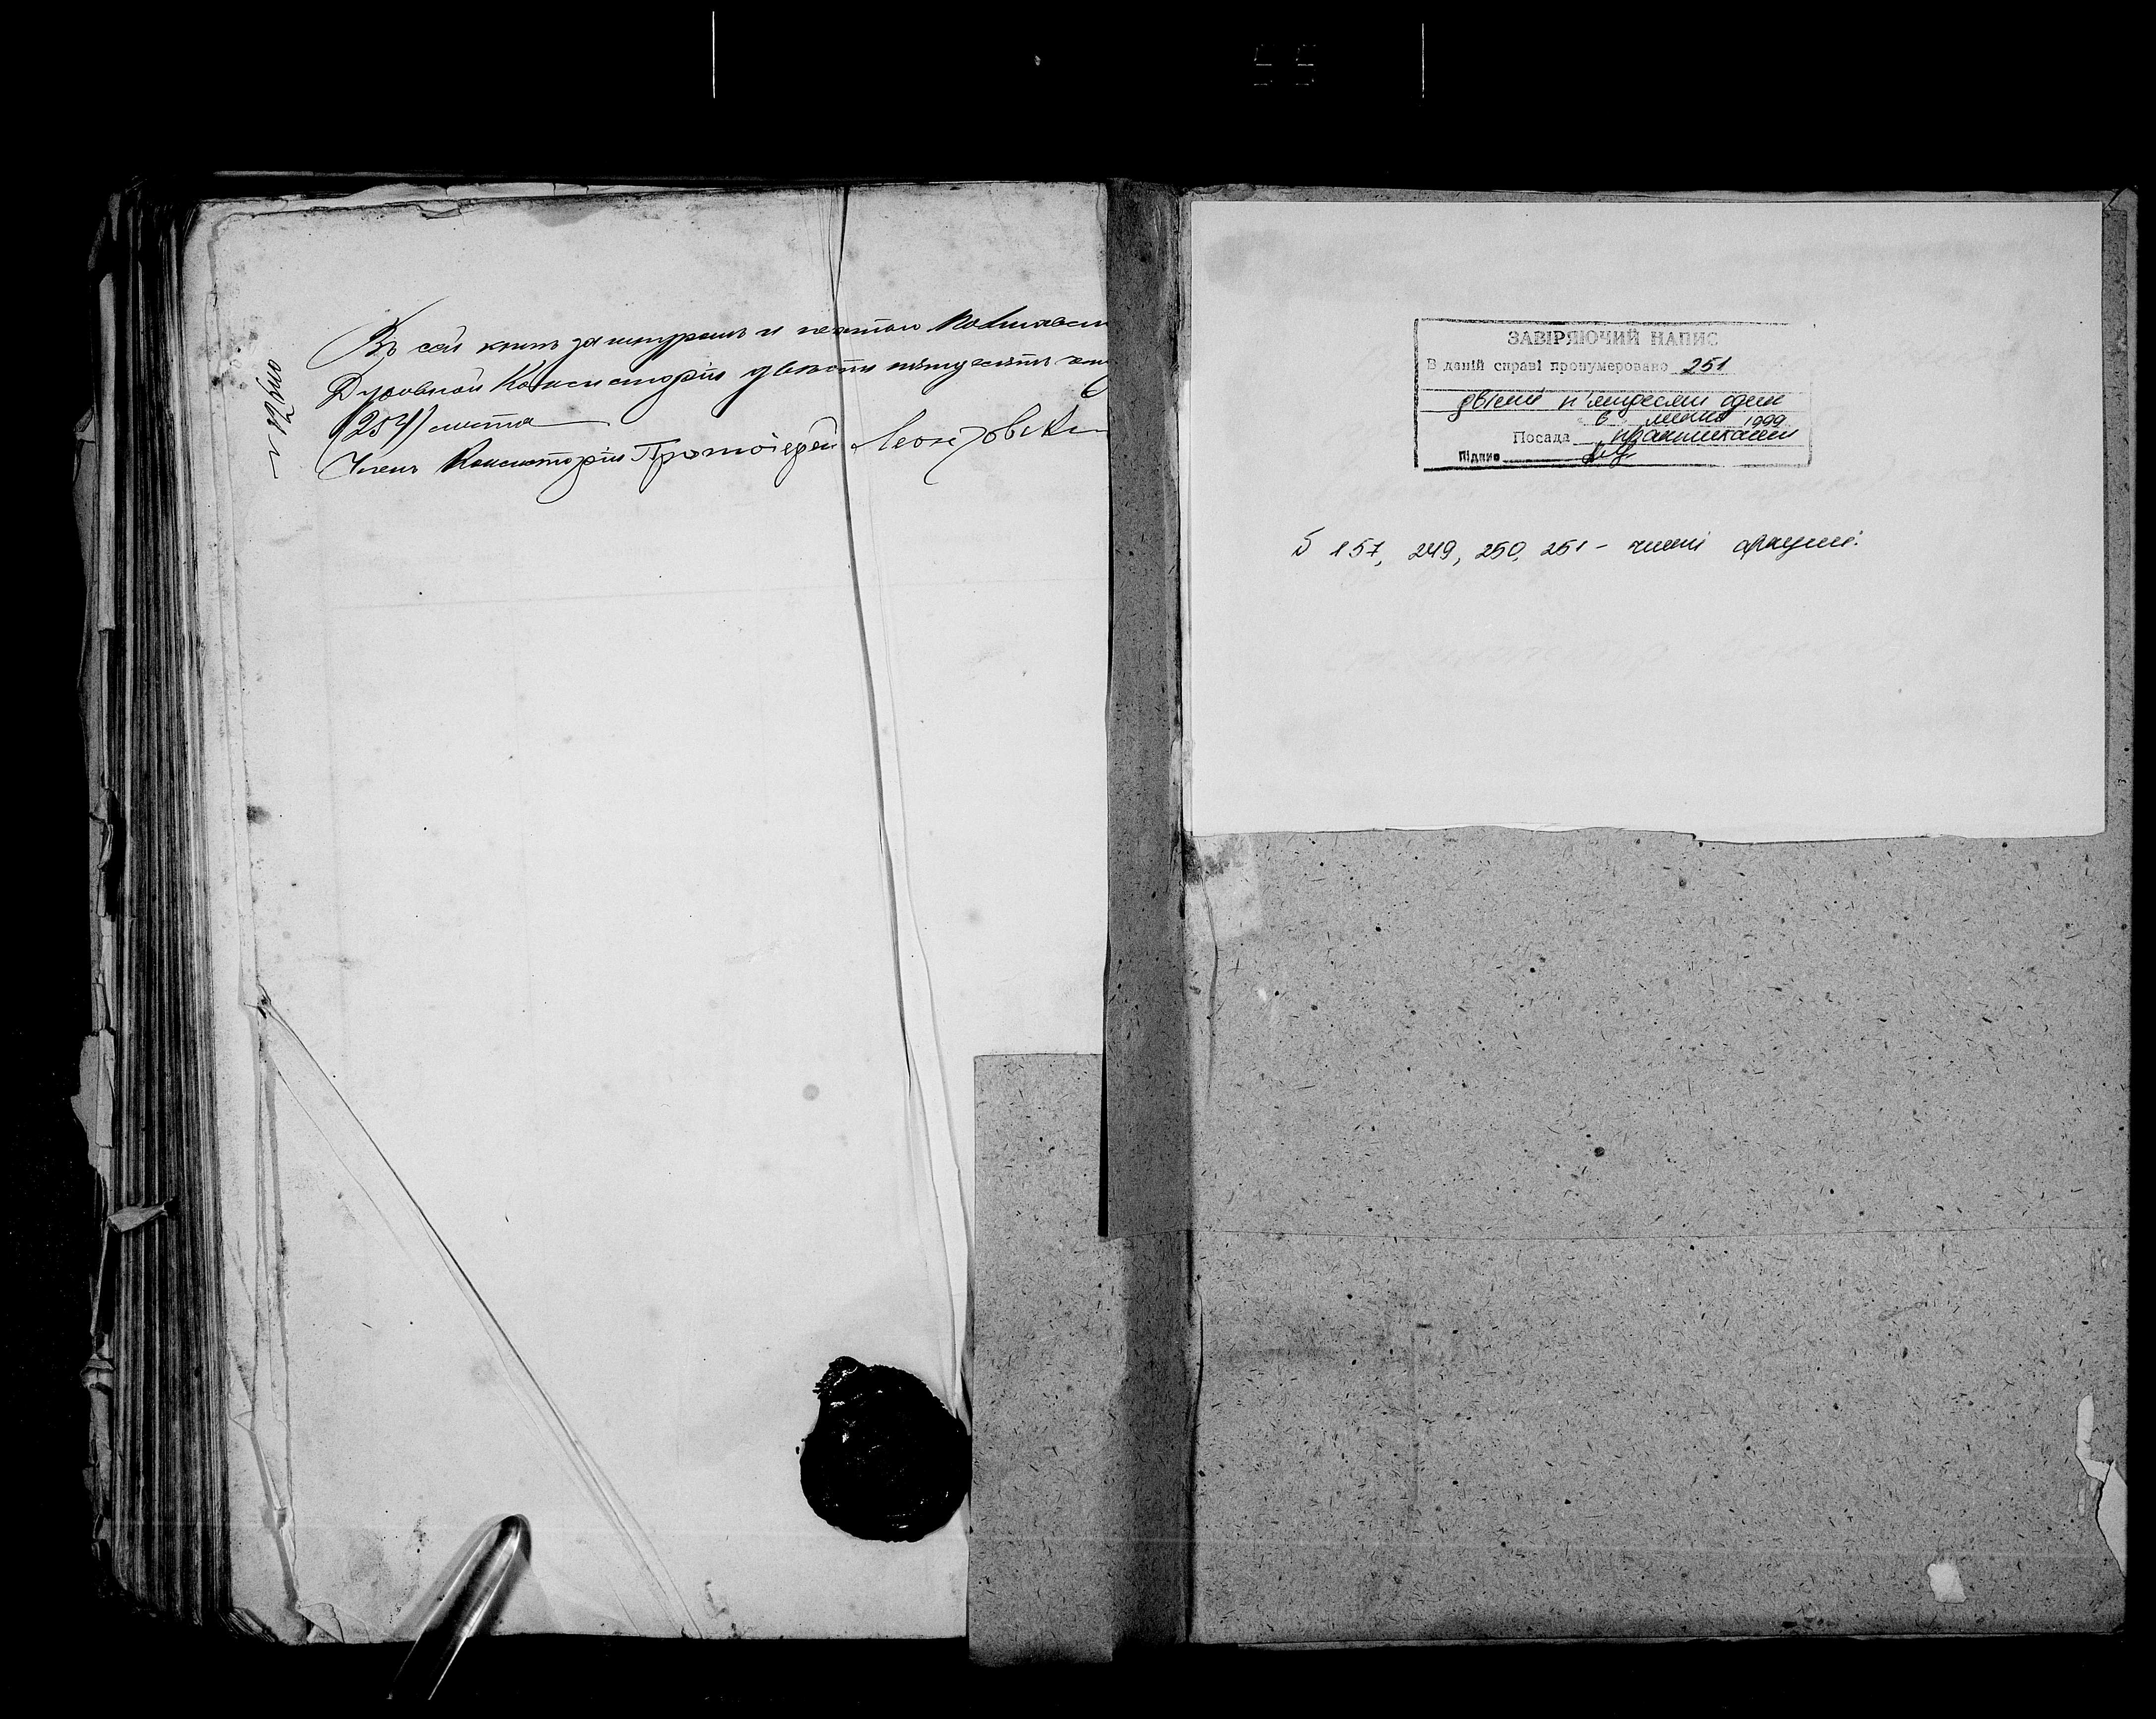 Въ сей книгѣ за шнуромъ и печатью
Духовной Консисторіи двѣсти пятьдесятъ
(254) листа
Членъ Консисторіи Протоіерей
ЗАВІРЯЮЧИЙ НАПИС
В даній справі пронумеровано 251
двісті п'ятдесят один
1999
Посада
Підпис
157, 249, 250, 251 - чисті аркуші.